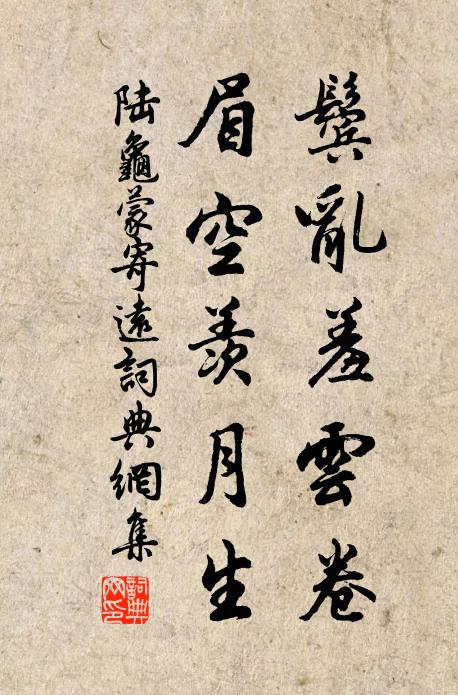 鬢亂羞雲卷
眉空羨月生
陸龜蒙寄遠詞典網集
詞典